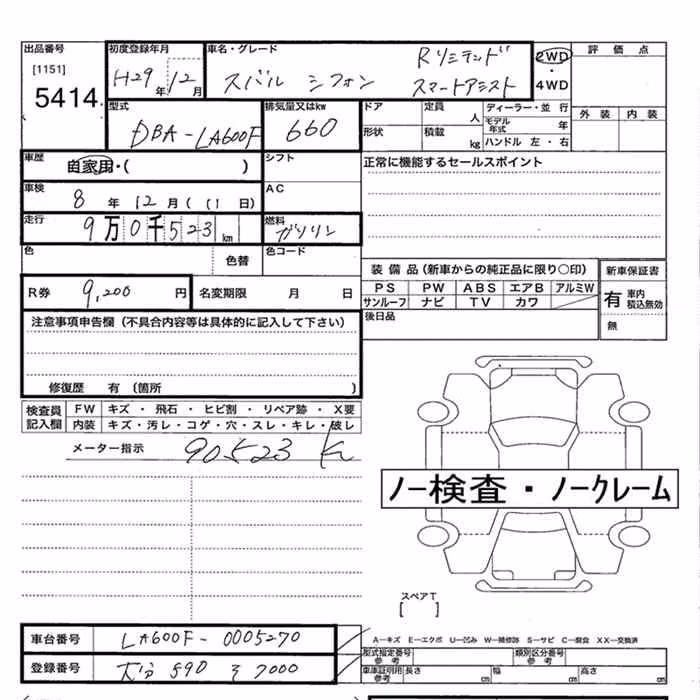 出品番号
[1151]
5414
初度登録年月
H29年12月
車名・グレード
Rリミテッド
スバル シフォン スマートアシスト
2WD
・
4WD
評価点
外装 内装
型式
DBA-LA600F
排気量又はkw
660
ドア
定員 人
ディーラー・並行
モデル年式 年
形状
積載 kg
ハンドル 左・右
車歴
自家用・( )
シフト
正常に機能するセールスポイント
車検
8年12月(11日)
AC
走行
9万0千523km
燃料
ガソリン
色
色替
色コード
装備品(新車からの純正品に限り○印)
新車保証書
PS PW ABS エアB アルミW
サンルーフ ナビ TV カワ
有 車内積込無効
無
R券 9,200円
名変期限 月 日
後日品
注意事項申告欄(不具合内容等は具体的に記入して下さい)
修復歴 有(箇所 )
検査員記入欄
FW キズ・飛石・ヒビ割・リペア跡・X要
内装 キズ・汚レ・コゲ・穴・スレ・キレ・破レ
メーター指示 90523 K
ノー検査・ノークレーム
スペアT
[ ]
車台番号 LA600F-0005270
A―キズ E―エクボ U―凹み W―補修跡 S―サビ C―腐食 XX―交換済
型式指定番号 参考
類別区分番号 参考
登録番号 大分 590 そ 7000
車庫証明用参考 長さ cm 幅 cm 高さ cm